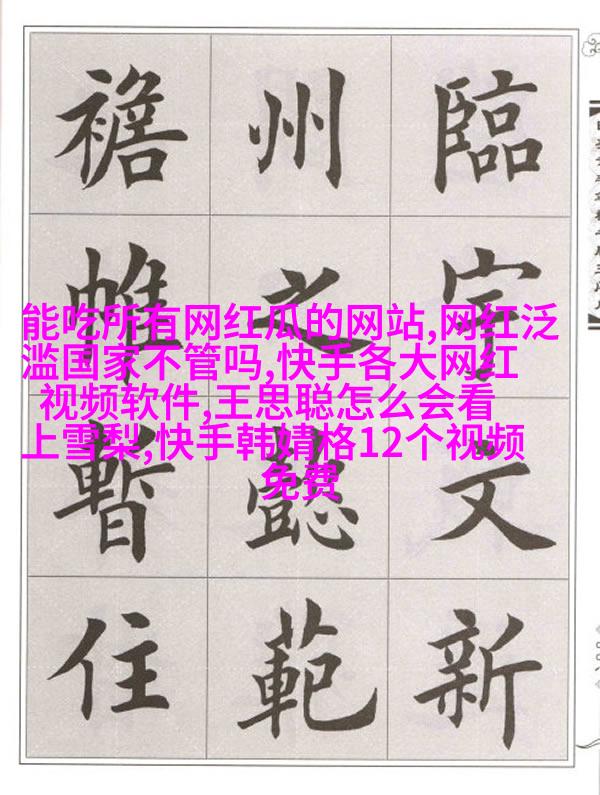 臨宇文新
州之懿範
襜帷暫住
能吃所有网红瓜的网站,网红泛
滥国家不管吗,快手各大网红
视频软件,王思聪怎么会看
上雪梨,快手韩婧格12个视频
免费